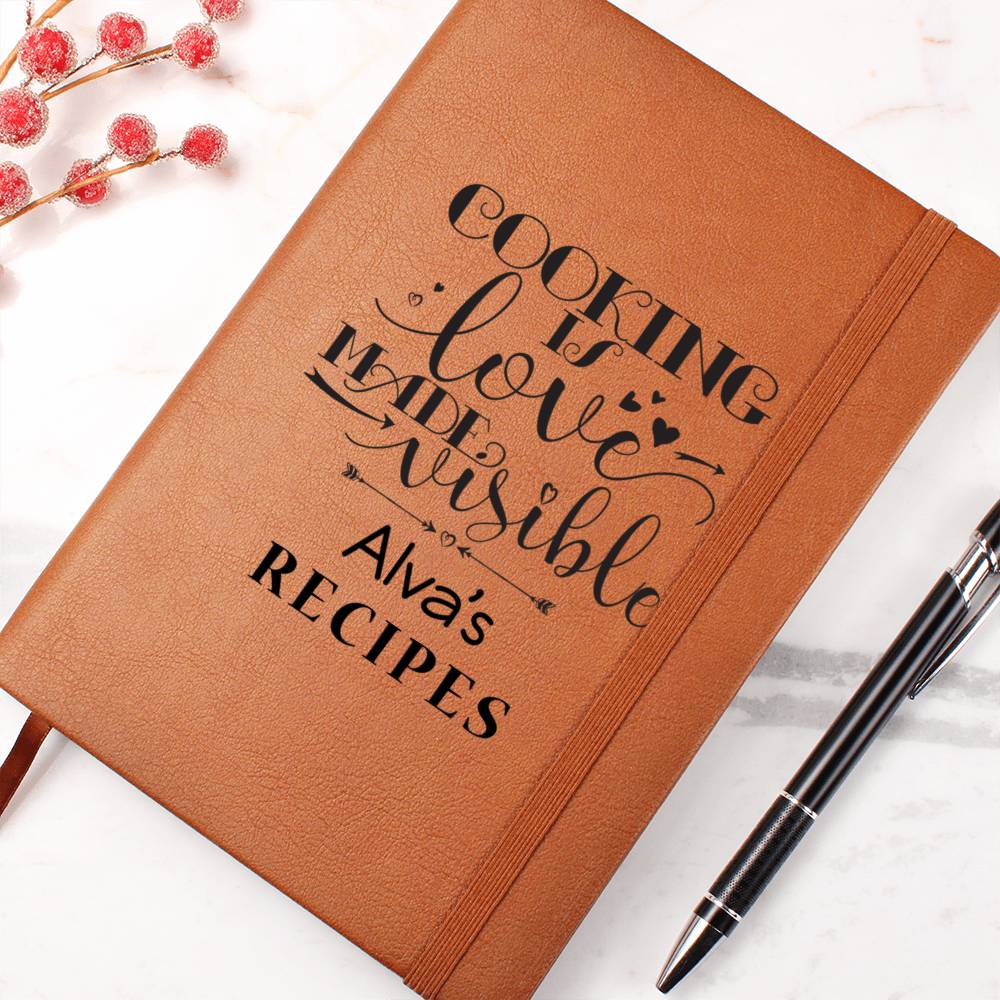 COOKING
IS
love
MADE
visible
Alva's
RECIPES